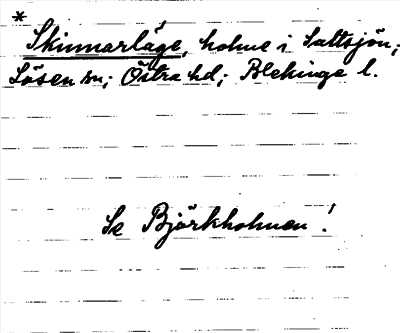 *
Skinnarläge, holme i Saltsjön;
Lösen sn; Östra hd; Blekinge l.
Se Björkholmen!